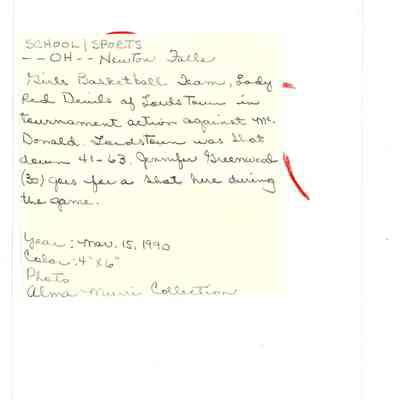 SCHOOL | SPORTS
-- OH -- Newton Falls
Girls Basketball Team, Lady
Red Devils of Lordstown in
tournament action against Mc.
Donald. Lordstown was shot
down 41-63. Jennifer Greenwood
(30) goes for a shot here during
the game.
Year: Mar. 15, 1990
Color: 4" x 6"
Photo
Alma Collection